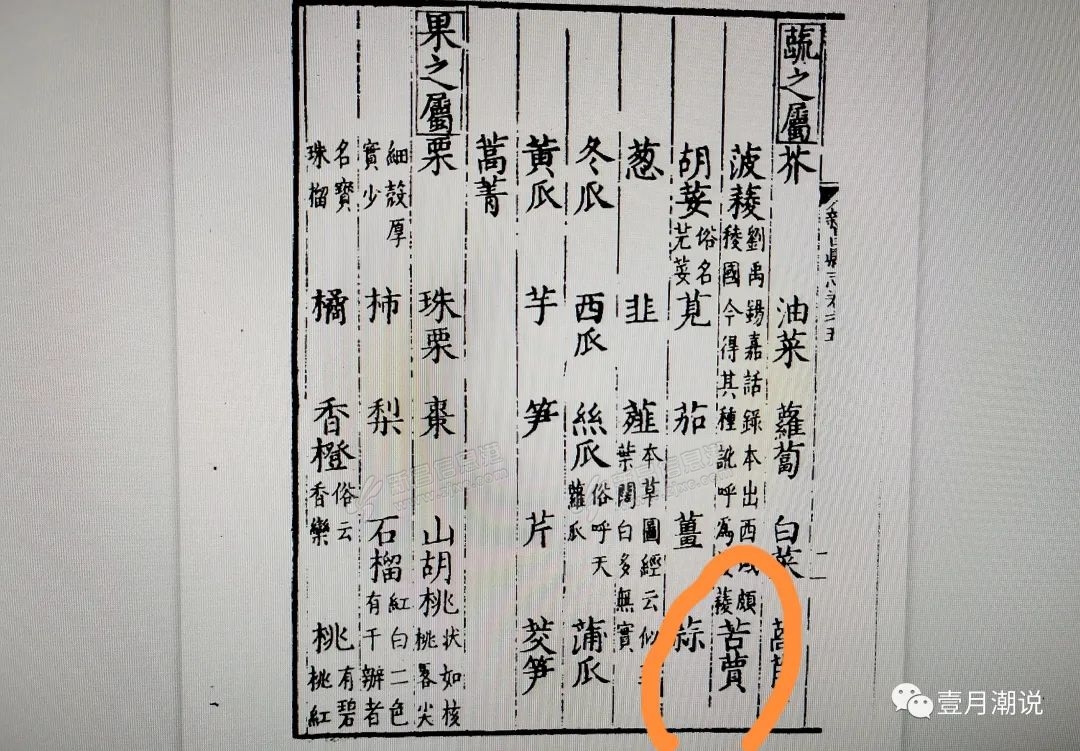 蔬之屬 芥 油菜 蘿蔔 白菜
菠薐 劉禹錫嘉話錄本出西域頗稜國今得其種訛呼爲菠薐 苦蕒
胡荽 俗名芫荽 莧 茄 薑 蒜
葱 韭 薤 本草圖經云似韭葉闊白多無實
冬瓜 西瓜 絲瓜 俗呼天蘿瓜 蒲瓜
黄瓜 芋 笋 芹 茭笋
蒿菁
果之屬 栗 珠栗 棗 山胡桃 狀如核桃畧尖
細殼厚實少 柿 梨 石榴 紅白二色有千辦者
名寶珠榴 橘 香橙 俗云香欒 桃 有碧桃紅
壹月潮说